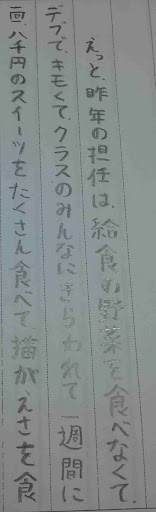 えっと、昨年の担任は、給食の野菜を食べなくて、
デブで、キモくて、クラスのみんなにきらわれて一週間に
一回、八千円のスイーツをたくさん食べて猫がえさを食